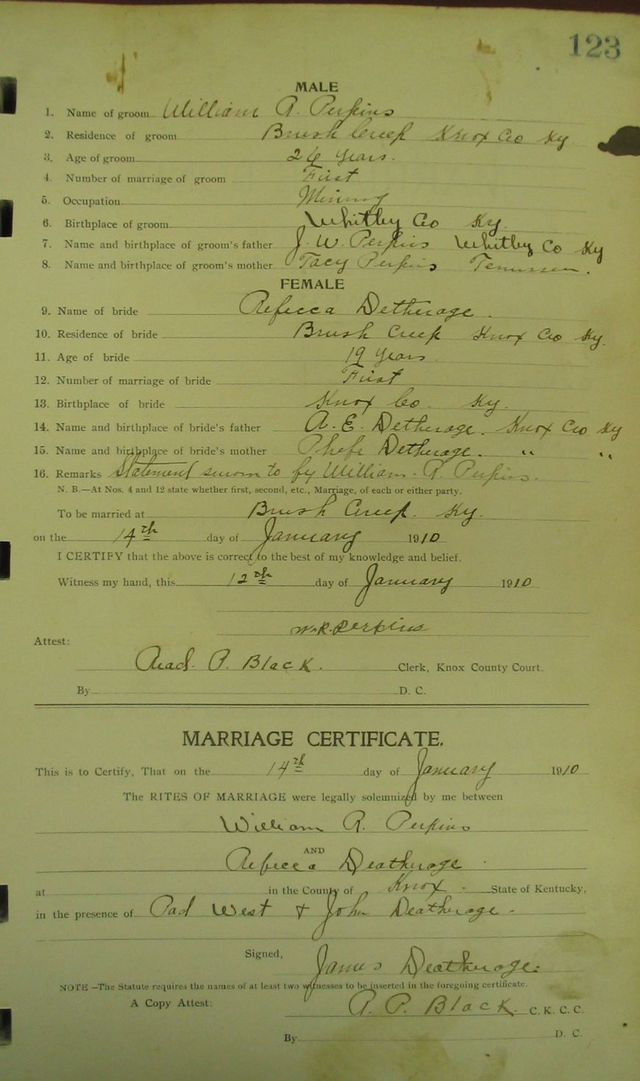 123
MALE
1. Name of groom William R. Perkins
2. Residence of groom Brush Creek Knox Co Ky
3. Age of groom 26 years.
4. Number of marriage of groom First
5. Occupation Mining
6. Birthplace of groom Whitley Co Ky.
7. Name and birthplace of groom's father J. W. Perkins Whitley Co Ky
8. Name and birthplace of groom's mother Tacy Perkins
FEMALE
9. Name of bride Rebecca Detherage.
10. Residence of bride Brush Creek Knox Co Ky.
11. Age of bride 19 years
12. Number of marriage of bride First
13. Birthplace of bride Knox Co. Ky.
14. Name and birthplace of bride's father A. E. Detherage. Knox Co Ky
15. Name and birthplace of bride's mother Phebe Detherage. " "
16. Remarks Statement sworn to by William R. Perkins.
N. B.—At Nos. 4 and 12 state whether first, second, etc., Marriage, of each or either party.
To be married at Brush Creek. Ky.
on the 14th day of January 1910
I CERTIFY that the above is correct to the best of my knowledge and belief.
Witness my hand, this 12th day of January 1910
W.R. Perkins
Attest:
Read P. Black. Clerk, Knox County Court.
By D. C.
MARRIAGE CERTIFICATE.
This is to Certify, That on the 14th day of January 1910
The RITES OF MARRIAGE were legally solemnized by me between
William R. Perkins
AND
Rebecca Deatherage.
at in the County of Knox. State of Kentucky,
in the presence of Pad West & John Deatherage.
Signed, James Deatherage.
NOTE—The Statute requires the names of at least two witnesses to be inserted in the foregoing certificate.
A Copy Attest: R. P. Black. C. K. C. C.
By D. C.